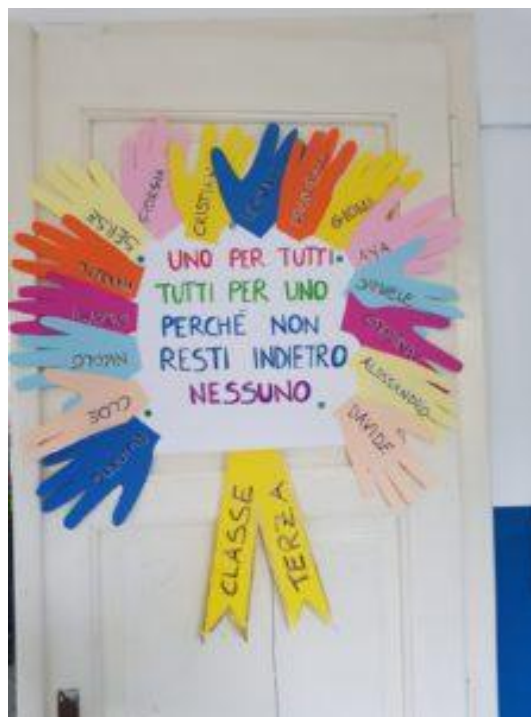 UNO PER TUTTI
TUTTI PER UNO
PERCHÉ NON
RESTI INDIETRO
NESSUNO
CLASSE
TERZA
SERSE
GIORGIA
CRISTIAN
GIOMI
AYA
DANIELE
ALESSANDRO
DAVIDE
NICOLO
CLOE